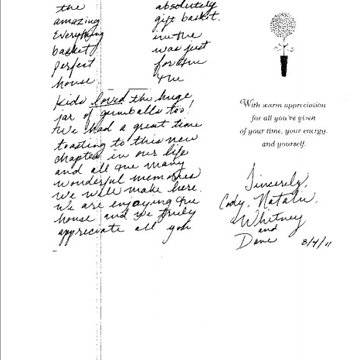 the absolutely
amazing gift basket.
Everything in the
basket was just
perfect for the
house. The
kids loved the huge
jar of gumballs too!
We had a great time
toasting to this new
chapter in our life
and all the many
wonderful memories
we will make here.
We are enjoying the
house and we truly
appreciate all you
With warm appreciation
for all you've given
of your time, your energy
and yourself.
Sincerely,
Cody, Natalie,
Whitney
and
Dave 8/4/11